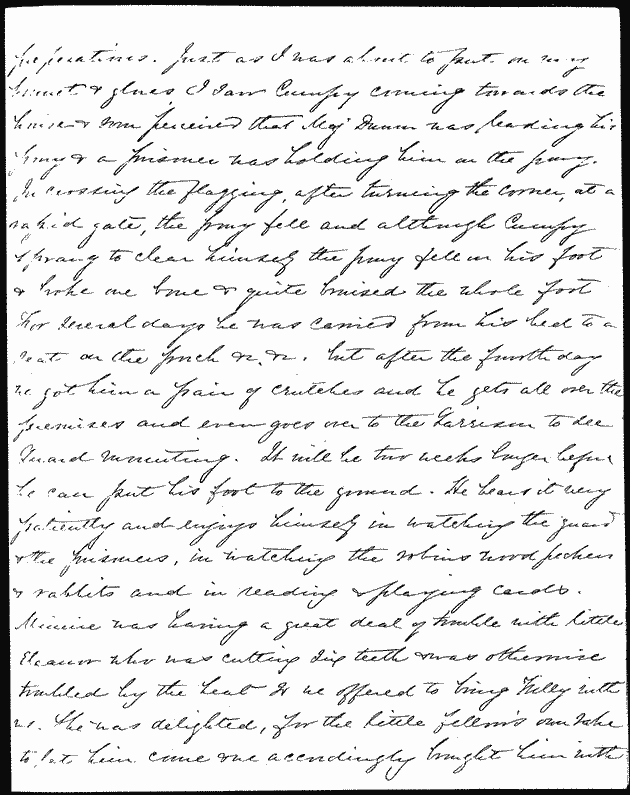 preparations. Just as I was about to put on my
bonnet & gloves I saw Cumpy coming towards the
house & soon perceived that Maj Dunn was leading his
pony & a prisoner was holding him on the pony.
In crossing the flagging, after turning the corner, at a
rapid gate, the pony fell and although Cumpy
sprang to clear himself the pony fell on his foot
& broke one bone & quite bruised the whole foot
For several days he was carried from his bed to a
seat on the porch &c. &c. but after the fourth day
we got him a pair of crutches and he gets all over the
premises and even goes over to the Garrison to see
Guard mounting. It will be two weeks longer before
he can put his foot to the ground. He bears it very
patiently and enjoys himself in watching the guard
& the prisoners, in watching the robins woodpeckers
& rabbits and in reading & playing cards.
Minnie was having a great deal of trouble with little
Eleanor who was cutting teeth & was otherwise
troubled by the heat & we offered to bring Willy with
us. She was delighted, for the little fellow's own sake
to let him come & we accordingly brought him with